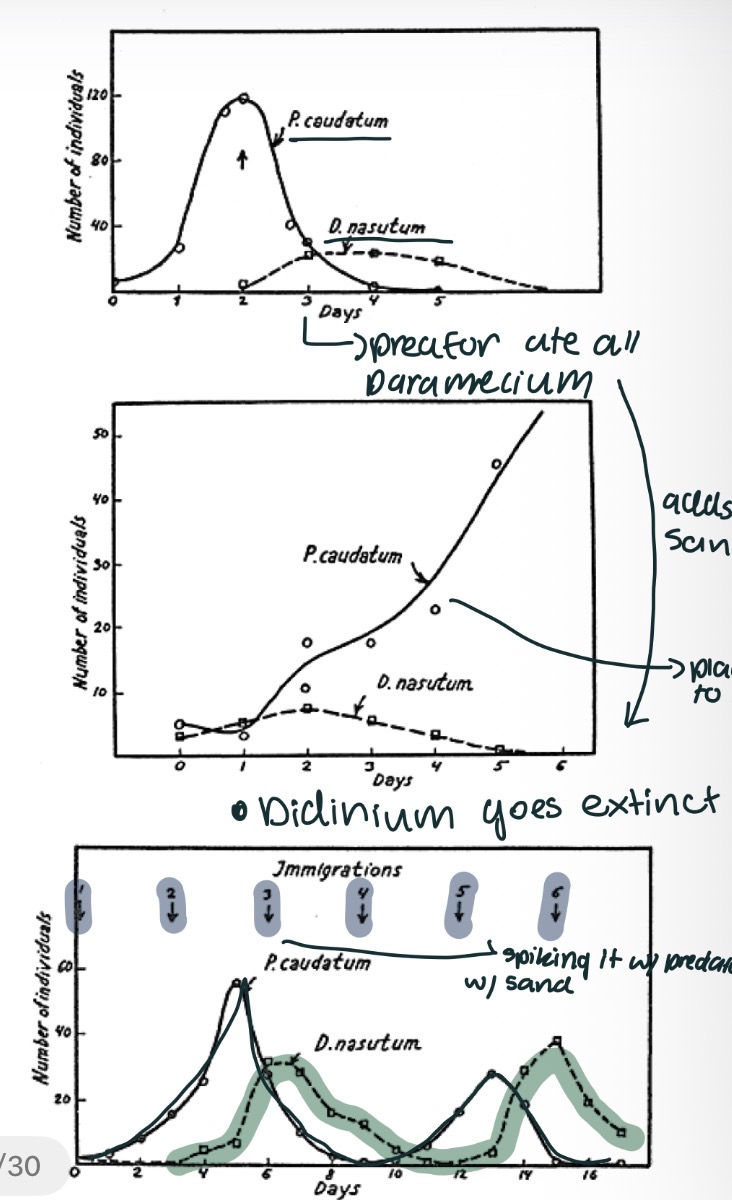 Number of individuals
120
80
40
P. caudatum
D. nasutum
0 1 2 3 4 5
Days
predator ate all
paramecium
adds
Number of individuals
50
40
30
20
10
P. caudatum
D. nasutum
0 1 2 3 4 5 6
Days
to
• Didinium goes extinct
Immigrations
1 2 3 4 5 6
Number of individuals
60
40
20
P. caudatum
spiking it w/
w/ sand
D. nasutum
0 2 4 6 8 10 12 14 16
Days
/30